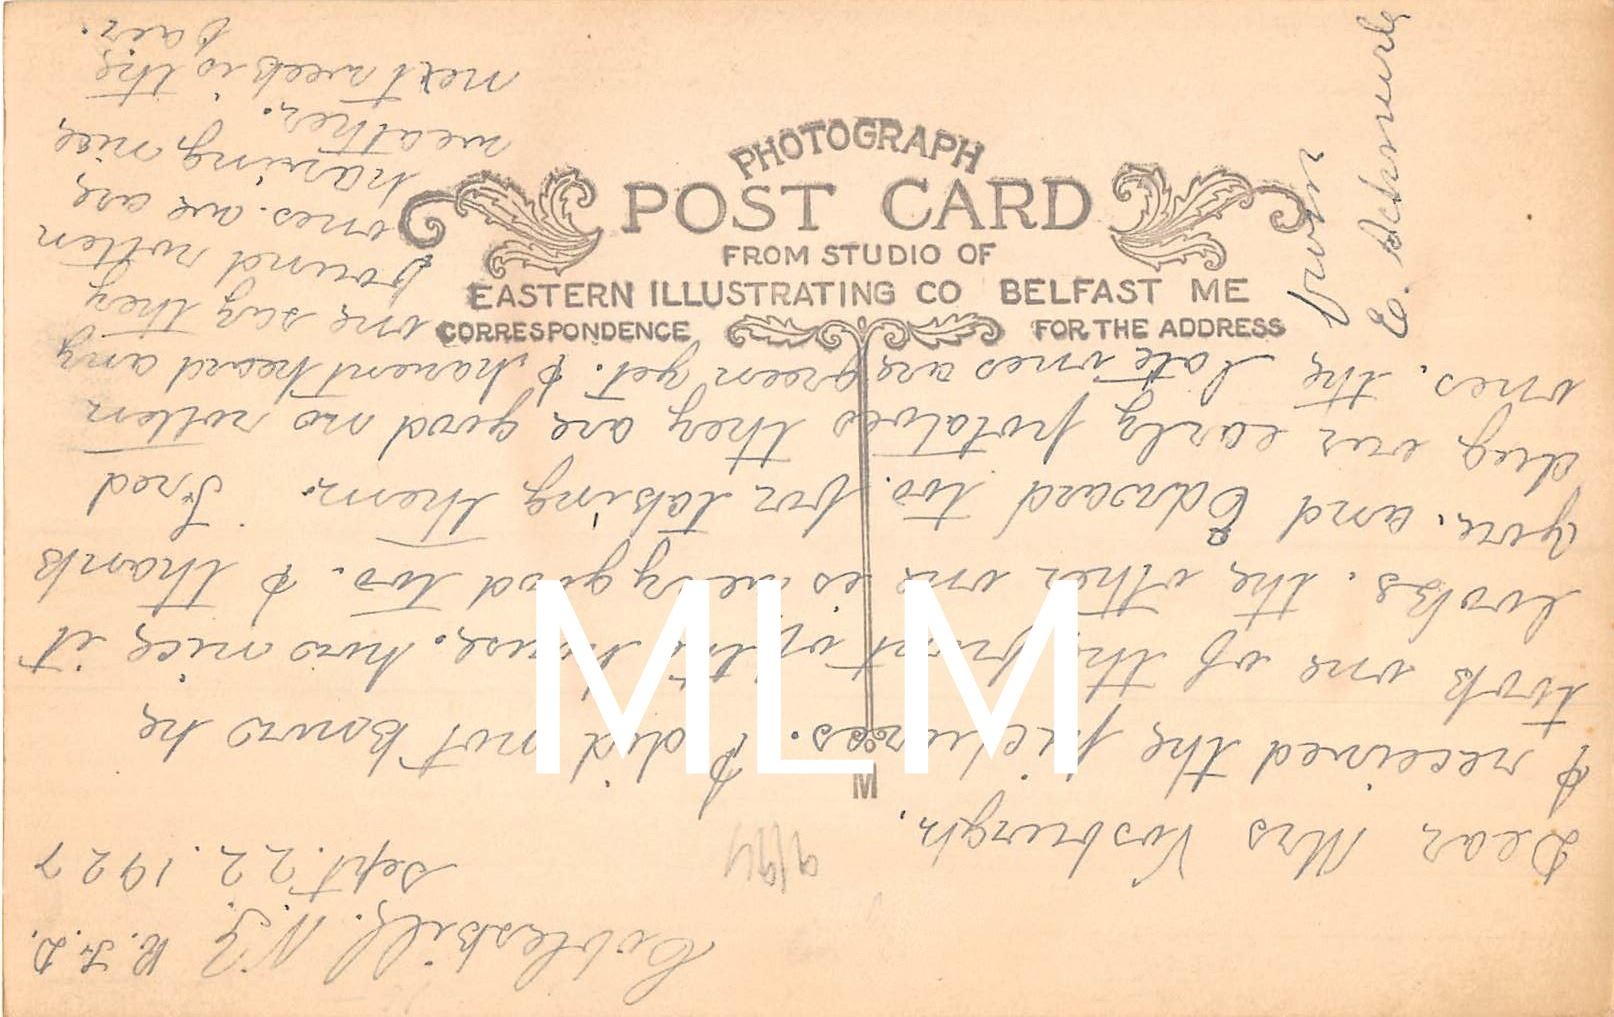 PHOTOGRAPH
POST CARD
FROM STUDIO OF
EASTERN ILLUSTRATING CO BELFAST ME
CORRESPONDENCE FOR THE ADDRESS
M
MLM
9/94
Cobleskill, N.Y. R.F.D.
Sept. 22. 1927
Dear Mrs Vosburgh,
I received the pictures. I did not know he
took one of the front of the house. how nice it
looks. the other one is very good too. I thank
you. and Edward too. for taking them. Fred
dug our early potatoes they are good no rotten
ones. the late ones are green yet. I havent heard any
one say they
found rotten
ones. we are
having nice
weather.
next week is the
fair.
from
E. Schmurle